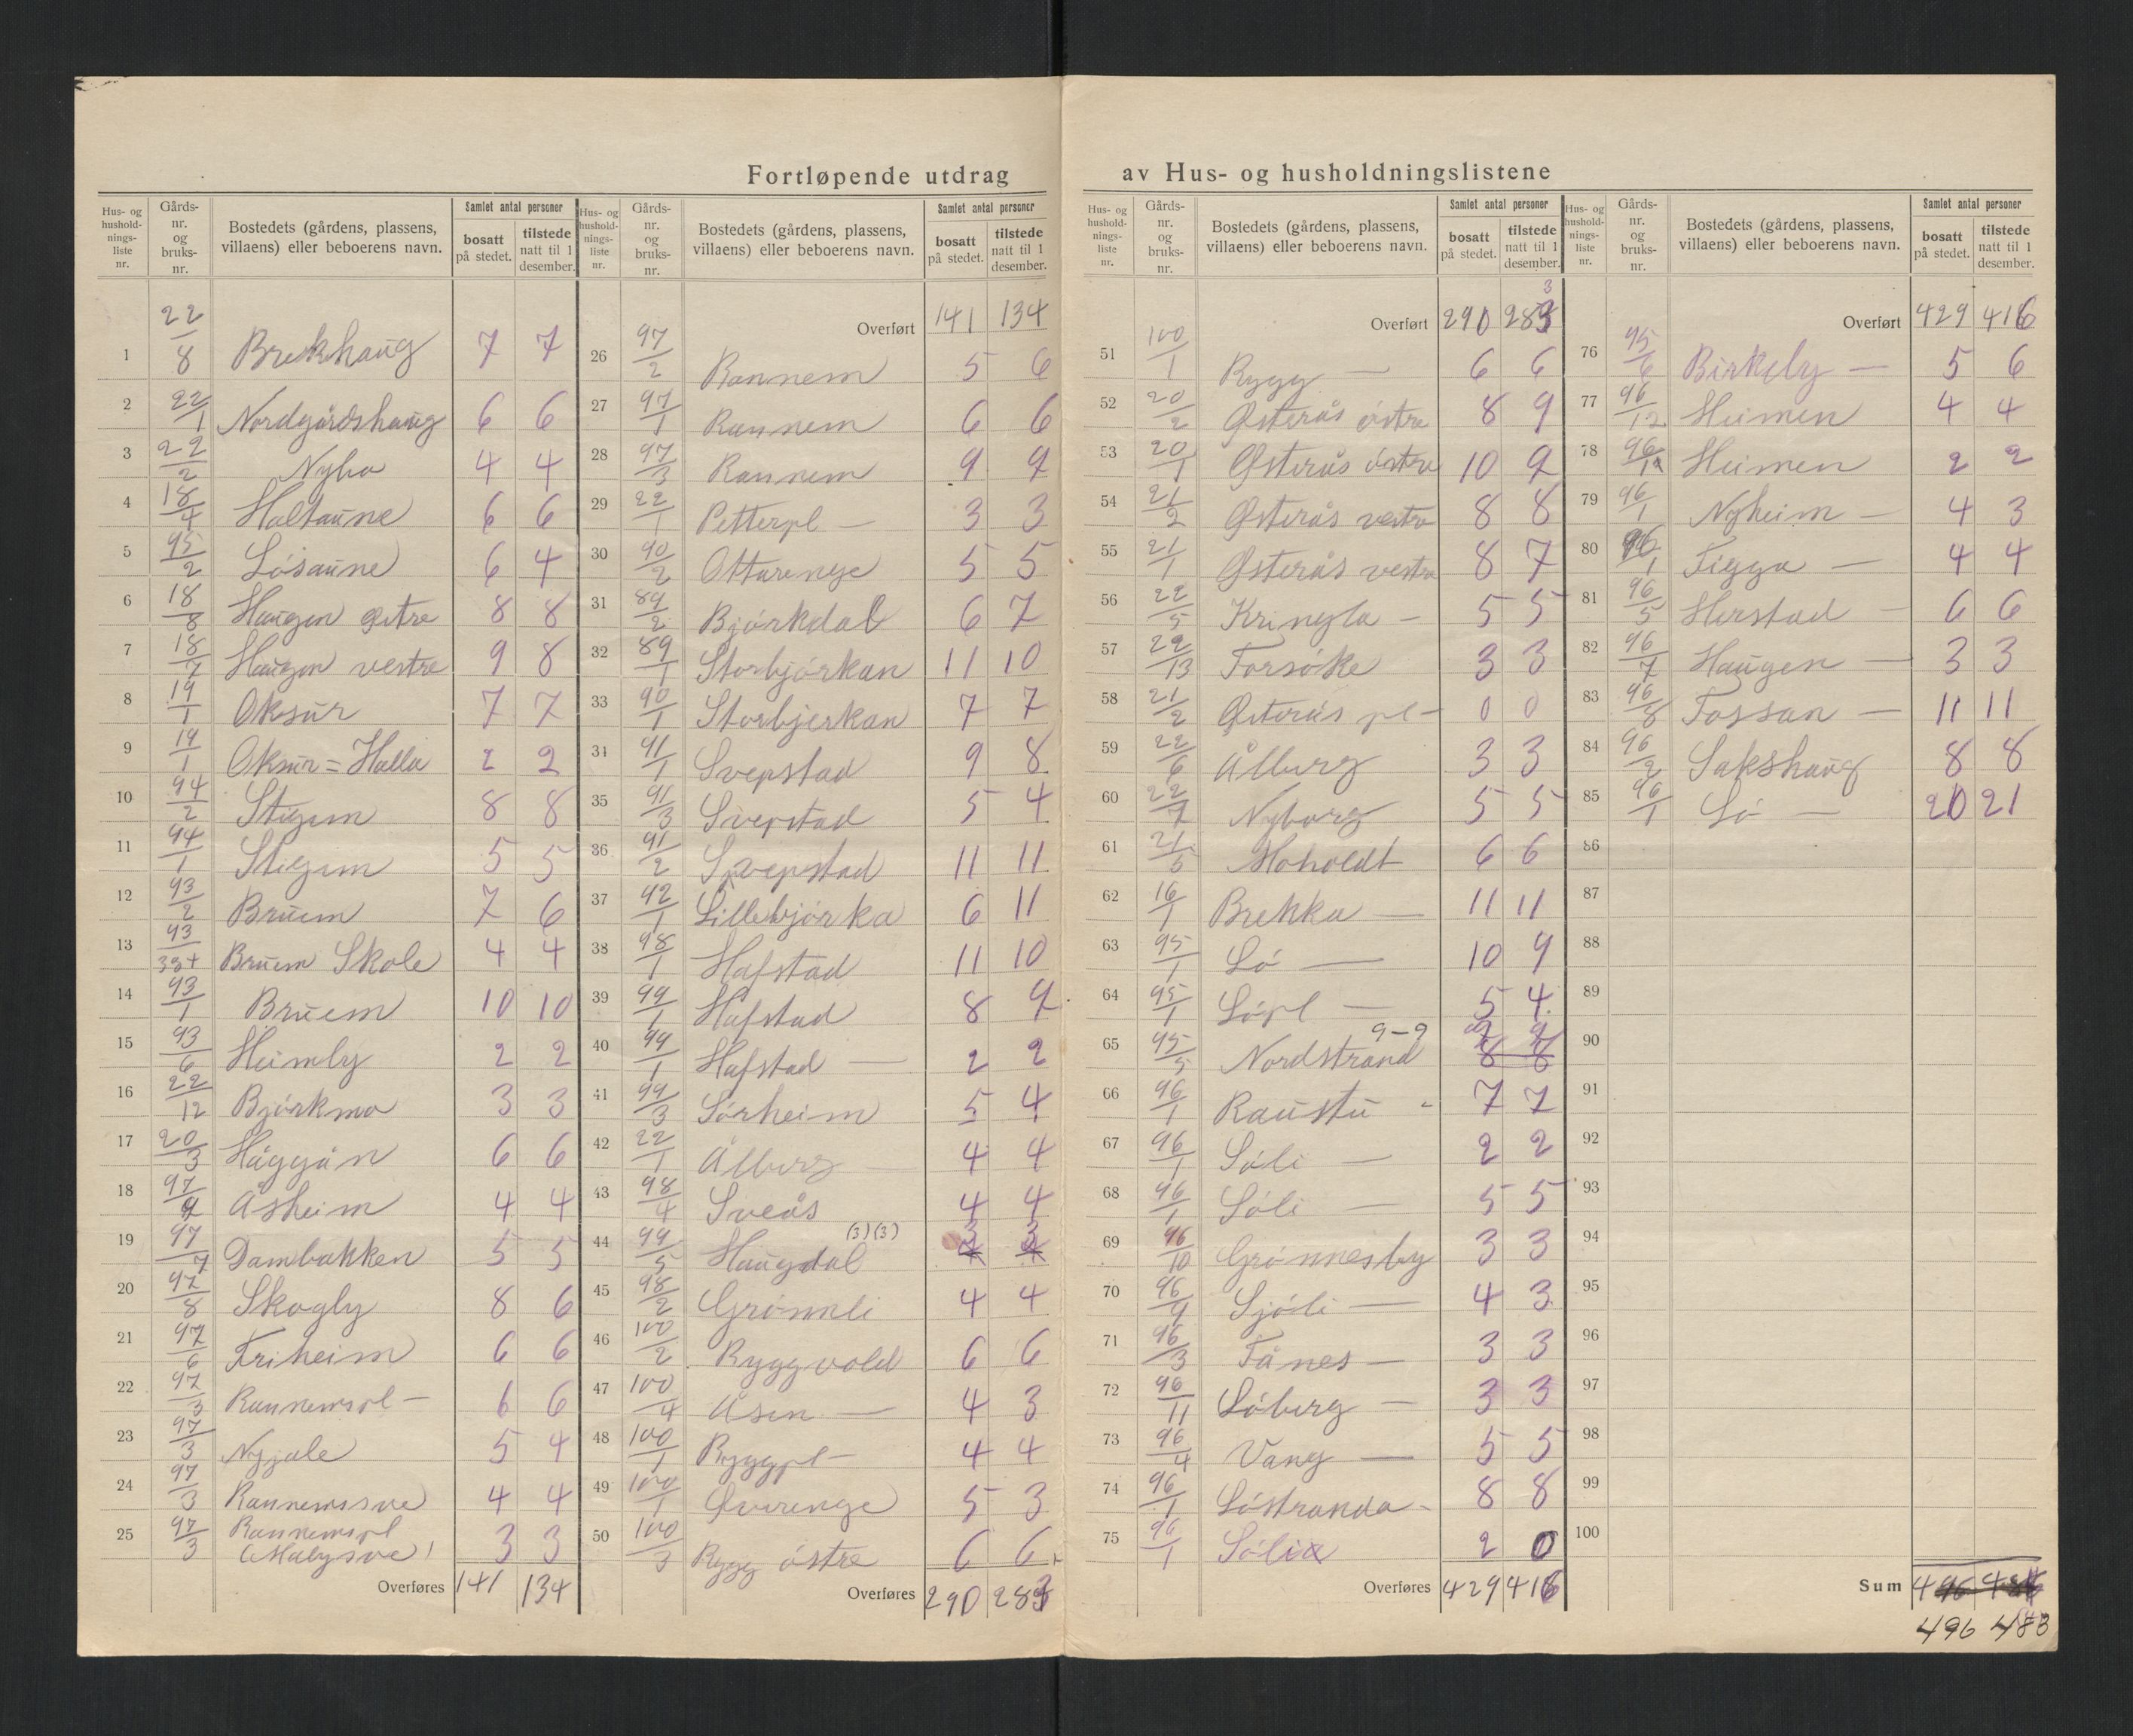 Fortløpende utdrag av Hus- og husholdningslistene
Hus- og hushold- nings- liste nr. | Gårds- nr. og bruks- nr. | Bostedets (gårdens, plassens, villaens) eller beboerens navn. | Samlet antal personer | bosatt på stedet. | tilstede natt til 1 desember.
1 22/8 Brekkhaug 7 7
2 22/1 Nordgårdshaug 6 6
3 22/2 Nybo 4 4
4 18/4 Haltaune 6 6
5 95/2 Lósaune 6 4
6 18/8 Haugen østre 8 8
7 18/7 Haugen vestre 9 8
8 19/1 Oksur 7 7
9 19/1 Oksur = Halla 2 2
10 94/2 Stigum 8 8
11 94/1 Stigum 5 5
12 93/2 Bruem 7 6
13 93/ Bruem Skole 4 4
14 93/1 Bruem 10 10
15 93/6 Heimly 2 2
16 22/12 Bjórkmo 3 3
17 20/3 Håggån 6 6
18 97/9 Åsheim 4 4
19 97/7 Dambakken 5 5
20 97/8 Skogly 8 6
21 97/6 Friheim 6 6
22 97/3 Rannemspl — 6 6
23 97/3 Nyjale 5 4
24 97/3 Rannemssve 4 4
25 97/3 Rannemspl
(Malysve) 3 3
Overføres 141 134
Hus- og hushold- nings- liste nr. | Gårds- nr. og bruks- nr. | Bostedets (gårdens, plassens, villaens) eller beboerens navn. | Samlet antal personer | bosatt på stedet. | tilstede natt til 1 desember.
Overført 141 134
26 97/2 Rannem 5 6
27 97/1 Rannem 6 6
28 97/3 Rannem 9 9
29 22/1 Petterpl — 3 3
30 90/2 Ottarenge 5 5
31 89/2 Bjórkdal 6 7
32 89/1 Storbjórkan 11 10
33 90/1 Storbjerkan 7 7
34 91/1 Svepstad 9 8
35 91/3 Svepstad 5 4
36 91/2 Svepstad 11 11
37 92/1 Lillebjórka 6 11
38 98/1 Hafstad 11 10
39 99/1 Hafstad 8 9
40 99/1 Hafstad — 2 2
41 99/3 Sórheim 5 4
42 22/1 Ålburg — 4 4
43 98/4 Sveås 4 4
44 99/5 Haugdal (3)(3) 3 3
45 98/2 Grónnli 4 4
46 100/2 Ryggvold 6 6
47 100/4 Åsen — 4 3
48 100/1 Ryggpl — 4 4
49 100/1 Øverenge 5 3
50 100/3 Rygg óstre 6 6
Overføres 290 283
Hus- og hushold- nings- liste nr. | Gårds- nr. og bruks- nr. | Bostedets (gårdens, plassens, villaens) eller beboerens navn. | Samlet antal personer | bosatt på stedet. | tilstede natt til 1 desember.
Overført 290 283
51 100/1 Rygg — 6 6
52 20/2 Østerås óstre 8 9
53 20/1 Østerås óstre 10 9
54 21/2 Østerås vestre 8 8
55 21/1 Østerås vestre 8 7
56 22/5 Kringla — 5 5
57 22/13 Forsóke 3 3
58 21/2 Østerås pl — 0 0
59 22/6 Ålburg 3 3
60 22/7 Nyborg 5 5
61 21/5 Moholdt 6 6
62 16/1 Brekka — 11 11
63 95/1 Ló — 10 9
64 95/1 Lópl — 5 4
65 95/5 Nordstrand 9-9 8 8
66 96/1 Raustu - 7 7
67 96/1 Sóli — 2 2
68 96/1 Sóli — 5 5
69 96/10 Grónnesby 3 3
70 96/9 Sjóli — 4 3
71 96/3 Fånes — 3 3
72 96/11 Lóberg — 3 3
73 96/4 Vang — 5 5
74 96/1 Lóstranda - 8 8
75 96/1 Sólia 2 0
Overføres 429 416
Hus- og hushold- nings- liste nr. | Gårds- nr. og bruks- nr. | Bostedets (gårdens, plassens, villaens) eller beboerens navn. | Samlet antal personer | bosatt på stedet. | tilstede natt til 1 desember.
Overført 429 416
76 95/6 Birkely — 5 6
77 96/12 Heimen 4 4
78 96/12 Heimen 2 2
79 96/1 Nyheim — 4 3
80 96/1 Figga — 4 4
81 96/5 Herstad — 6 6
82 96/7 Haugen — 3 3
83 96/8 Fossan — 11 11
84 96/2 Sakshaug 8 8
85 96/1 Ló — 20 21
86
87
88
89
90
91
92
93
94
95
96
97
98
99
100
Sum
496 483